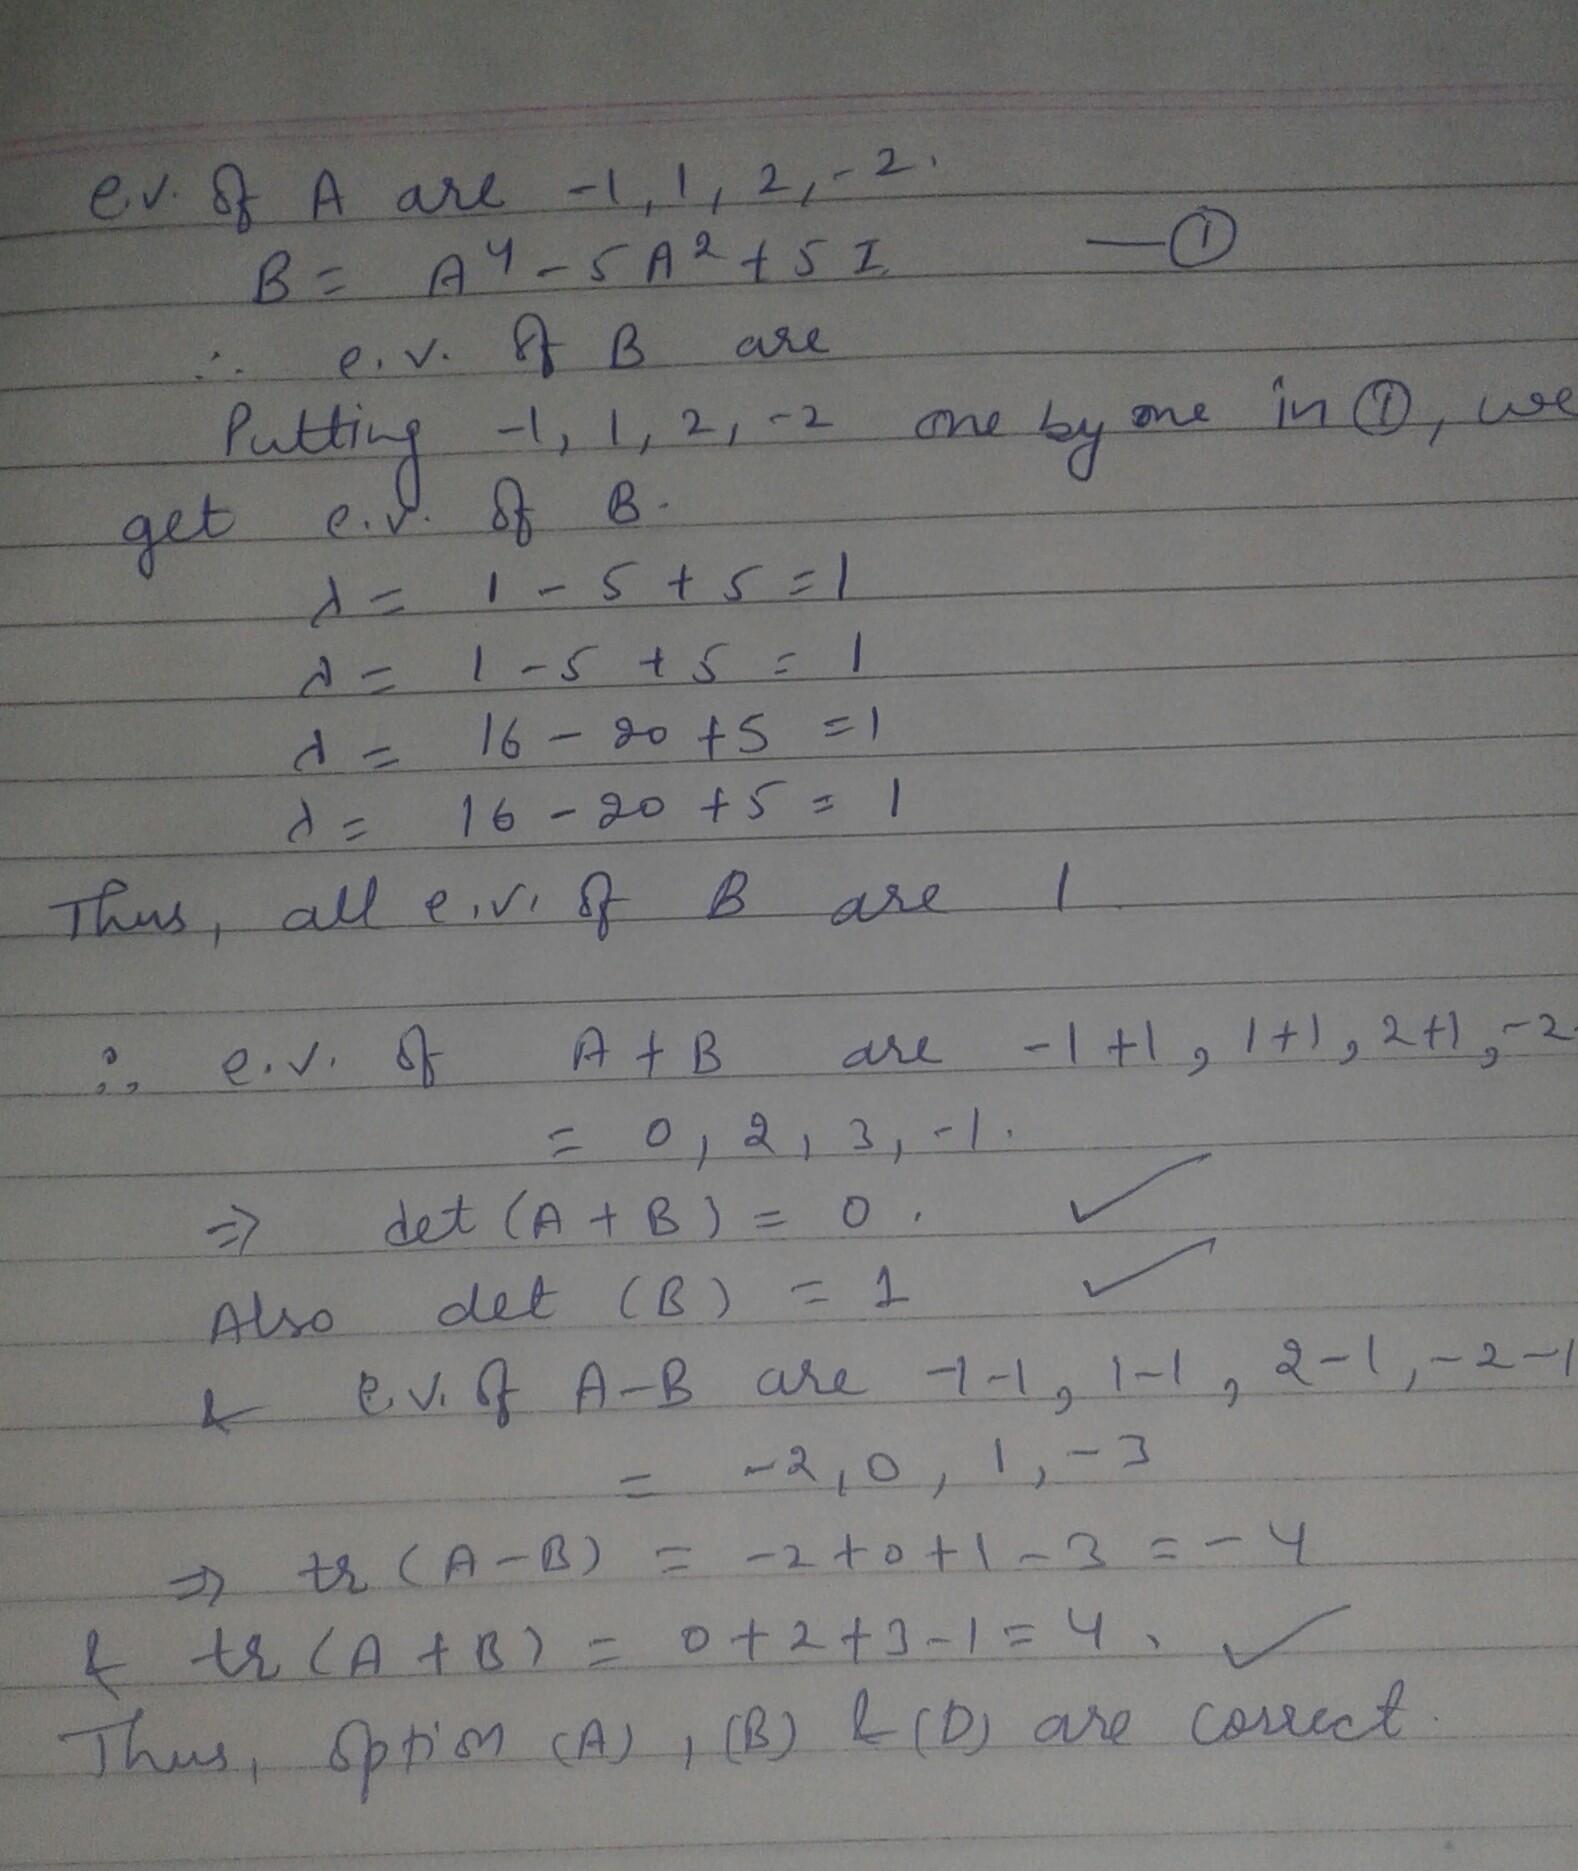 e.v. of A are -1, 1, 2, -2.
B = A⁴ - 5A² + 5I —①
∴ e.v. of B are
Putting -1, 1, 2, -2 one by one in ①, we
get e.v. of B.
λ = 1 - 5 + 5 = 1
λ = 1 - 5 + 5 = 1
λ = 16 - 20 + 5 = 1
λ = 16 - 20 + 5 = 1
Thus, all e.v. of B are 1
∴ e.v. of A + B are -1+1, 1+1, 2+1, -2
= 0, 2, 3, -1.
⇒ det (A + B) = 0. ✓
Also det (B) = 1 ✓
& e.v. of A-B are -1-1, 1-1, 2-1, -2-1
= -2, 0, 1, -3
⇒ tr (A-B) = -2+0+1-3 = -4
& tr (A+B) = 0+2+3-1 = 4, ✓
Thus, option (A), (B) & (D) are correct.